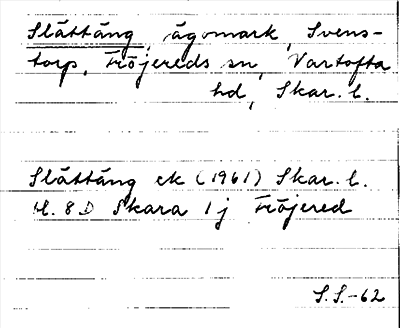 Slättäng, ägomark, Svens-
torp, Fröjereds sn, Vartofta
hd, Skar. l.
Slättäng ek (1961) Skar. l.
bl. 8 D Skara 1 j Fröjered
S.S.-62